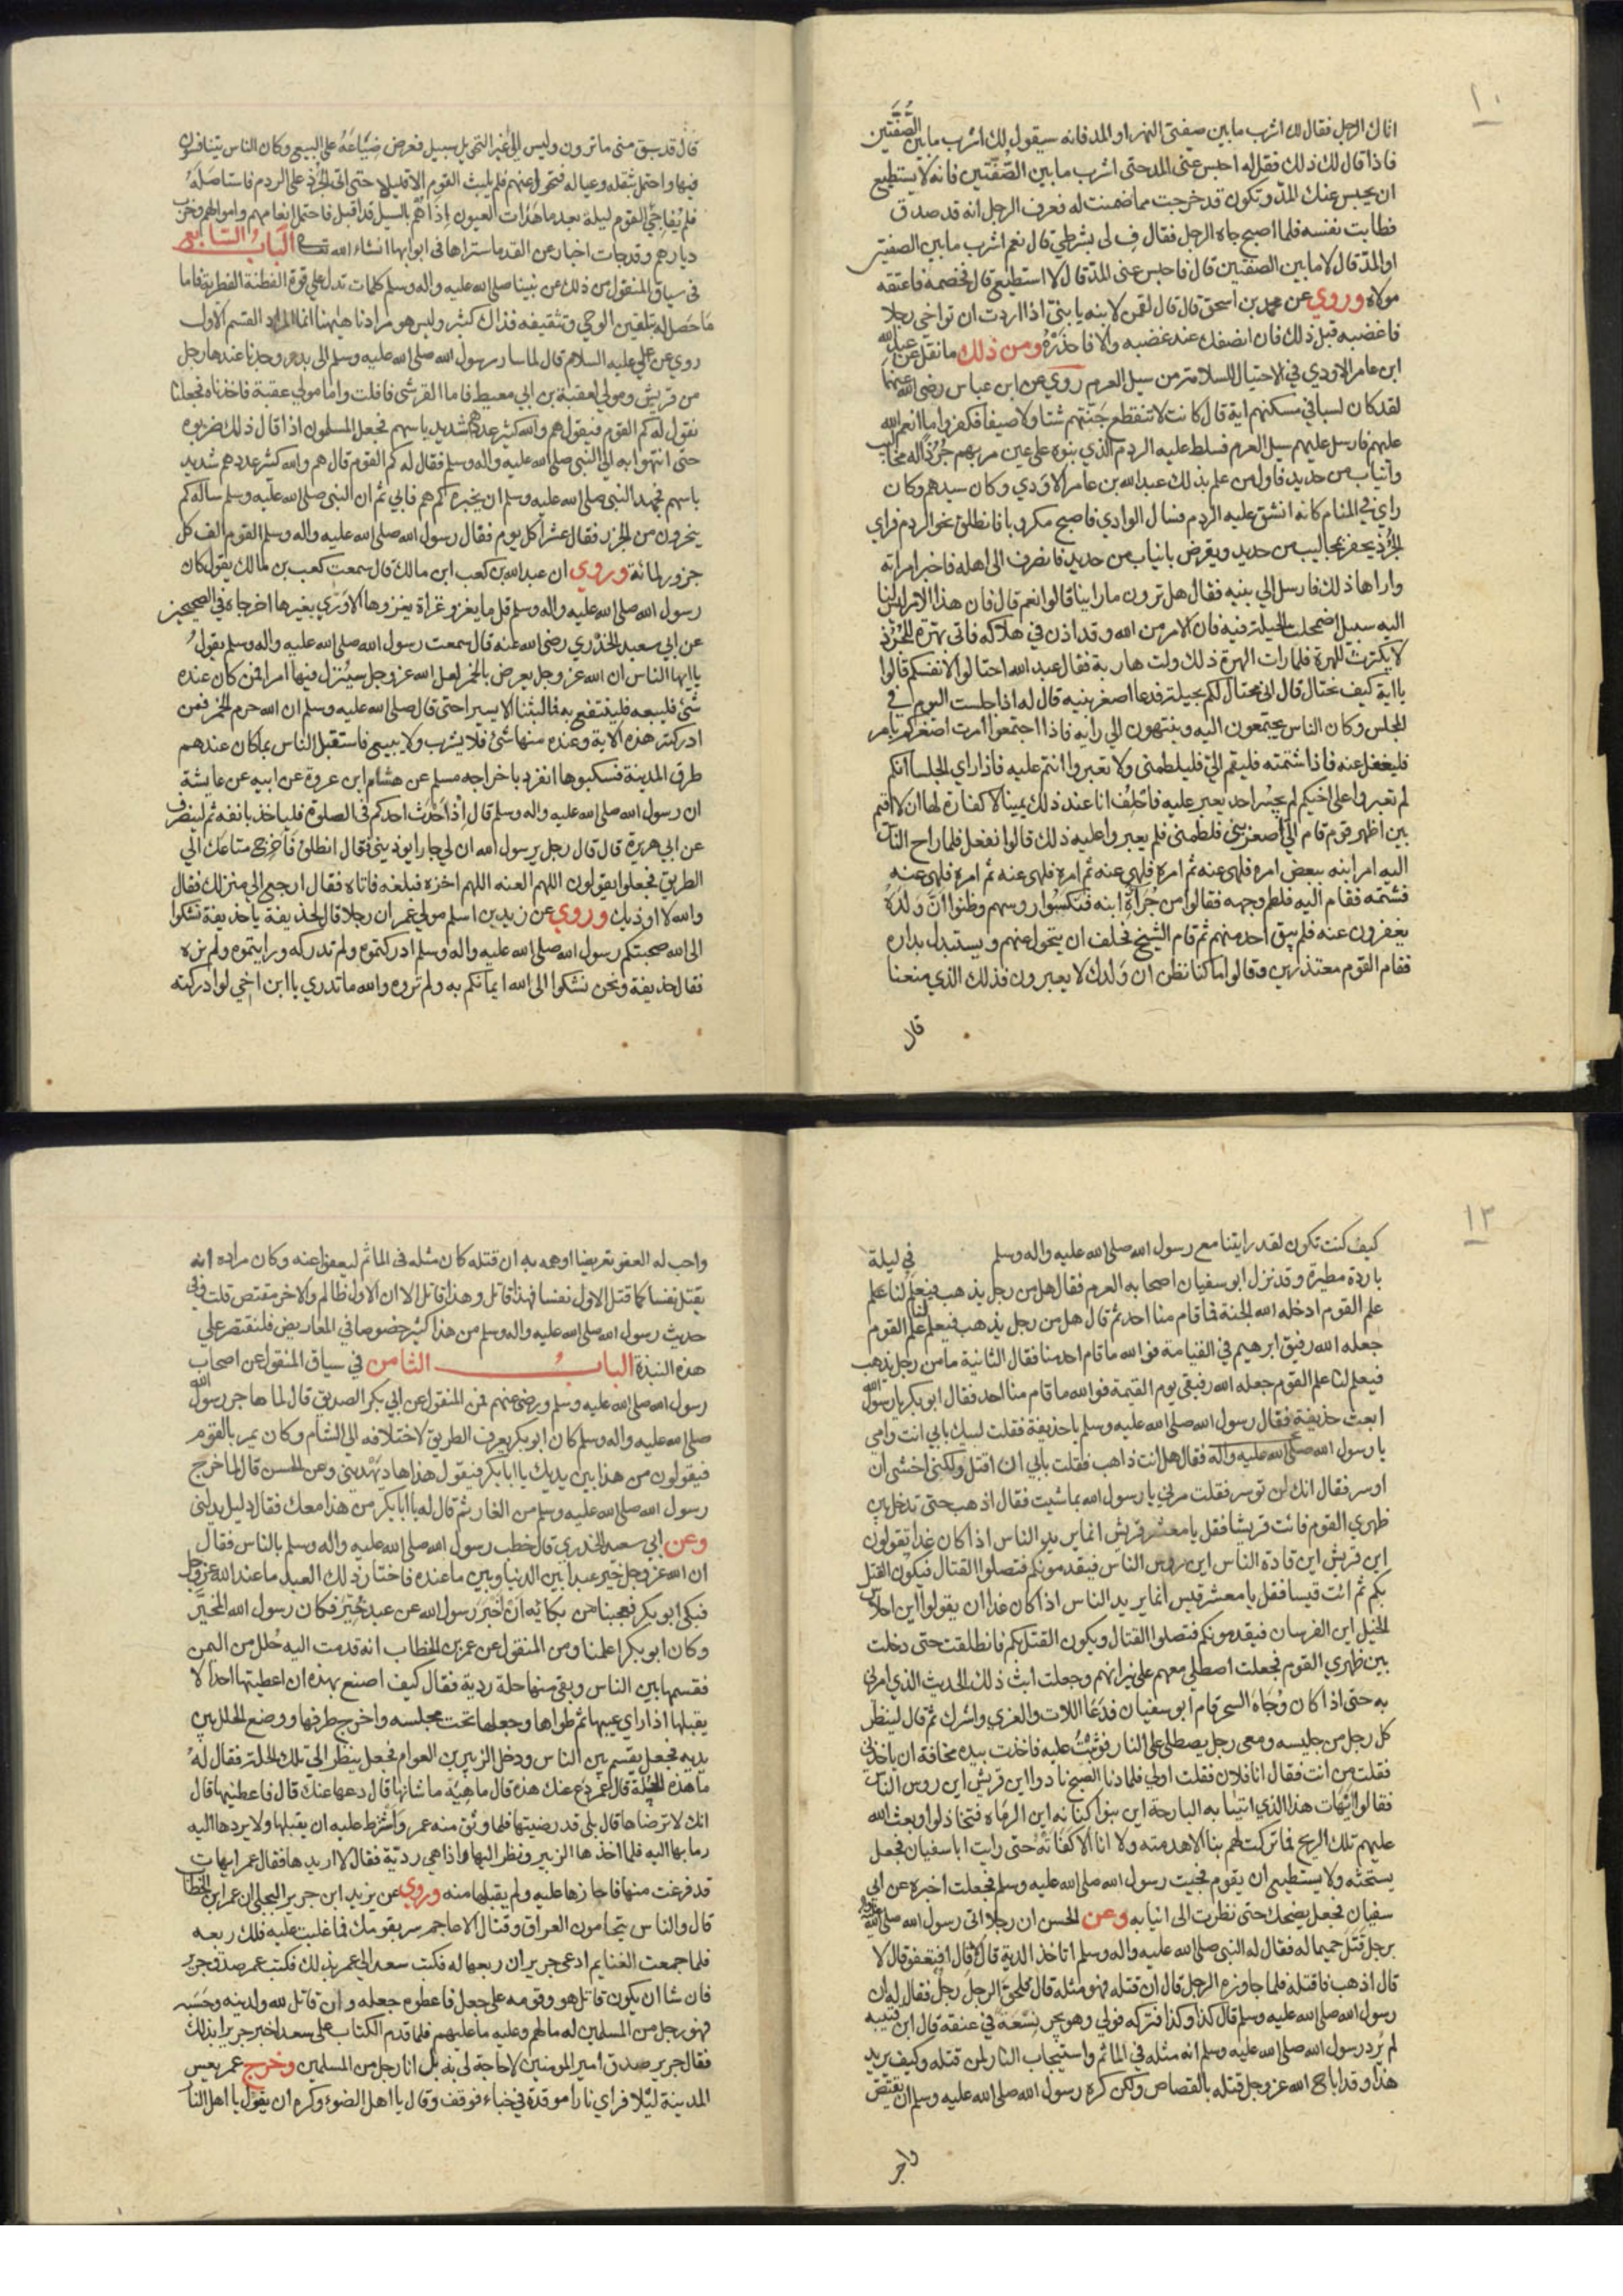 ١٠
اتاك الرجل فقال لك اشرب ما بين صفتي النهر او المد فانه سيقول لك اشرب ما بين الصفتين
فاذا قال لك ذلك فقل له احبس عني المد حتى اشرب ما بين الصفتين فانه لا يستطيع
ان يحبس عنك المد وتكون قد خرجت مما ضمنت له فعرف الرجل انه قد صدق
فطابت نفسه فلما اصبح جاه الرجل فقال ف لى بشرطي قال نعم اشرب ما بين الصفتين
او المد قال لا ما بين الصفتين قال فاحبس عني المد قال لا استطيع قال فخصمه فاعتقه
مولاه وروي عن محمد بن اسحق قال قال لقمن لابنه يا بني اذا اردت ان تواخي رجلا
فاغضبه قبل ذلك فان انصفك عند غضبه والا فاحذره ومن ذلك ما نقل عن عبد الله
ابن عامر الاودي في الاحتيال للسلامة من سيل العرم روي عن ابن عباس رضى الله عنهما
لقد كان لسبا في مسكنهم اية قال كانت لا تنقطع جنتهم شتا ولا صيفا فكفروا ما انعم الله
عليهم فارسل عليهم سيل العرم فسلط عليه الردم الذي بنوه على عين مربهم جرذا له مخاليب
وانياب من حديد فاول من علم بذلك عبد الله بن عامر الاودي وكان سيدهم وكان
راي في المنام كانه انشق عليه الردم فسال الوادي فاصبح مكروبا فانطلق نحو الردم فراي
الجرذ يحفر بمخاليب من حديد ويقرض بانياب من حديد فانصرف الى اهله فاخبر امراته
واراها ذلك فارسل الي بنيه فقال هل ترون ما راينا قالوا نعم قال فان هذا الامر ليس لنا
اليه سبيل اضمحلت الحيلة فيه فان الامر من الله وقد اذن في هلاكه فاتي بهرة للجرذ
لا يكترث للهرة فلما رات الهرة ذلك ولت هاربة فقال عبد الله احتالوا لانفسكم قالوا
يا ابة كيف نحتال قال اني محتال لكم بحيلة فدعا اصغر بنيه قال له اذا جلست اليوم في
المجلس وكان الناس يجتمعون اليه وينتهون الي رايه فاذا اجتمعوا امرت اصغركم بامر
فليغفل عنه فاذا شتمته فليقم الي فليلطمني ولا تغيروا انتم عليه فاذا راي الجلسا انكم
لم تغيروا على اخيكم لم يجسر احد يغير عليه فاحلف انا عند ذلك يمينا لا كفارة لها ان لا اقيم
بين اظهر قوم قام الي اصغر بني فلطمني فلم يغيروا عليه ذلك قالوا نفعل فلما راح الناس
اليه امر ابنه ببعض امره فلهى عنه ثم امره فلهي عنه ثم امره فلهى عنه ثم امره فلهى عنه
فشتمه فقام اليه فلطم وجهه فقالوا من جراة ابنه فنكسوا روسهم وظنوا ان ولده
يغفرون عنه فلم يبق احد منهم ثم قام الشيخ فحلف ان يتحول عنهم ويستبدل بداره
فقام القوم معتذرين وقالوا ما كنا نظن ان ولدك لا يغيرون فذلك الذي منعنا
قال
قال قد سبق مني ما ترون وليس الى غير التحويل سبيل فعرض ضياعه على البيع وكان الناس يتنافسون
فيها واحتمل بثقله وعياله فتحول عنهم فلم يلبث القوم الا قليلا حتى اتى الجرذ على الردم فاستاصله
فلم يفاجي القوم ليلة بعد ما هدات العيون اذا هم بالسيل قد اقبل فاحتمل انعامهم واموالهم وخرب
ديارهم وقد جات اخبار عن القدما ستراها في ابوابها انشاء الله تعالى الباب السابع
في سياق المنقول من ذلك عن نبينا صلى الله عليه واله وسلم كلمات تدل على قوة الفطنة الفطرية فاما
ما حصل له بتلقين الوحي وتثقيفه فذاك كثير وليس هو مرادنا هيهنا انما المراد القسم الاول
روي عن علي عليه السلام قال لما سار رسول الله صلى الله عليه وسلم الى بدر وجدنا عندها رجل
من قريش ومولي لعقبة بن ابي معيط فاما القرشى فافلت واما مولي عقبة فاخذناه فجعلنا
نقول له كم القوم فيقول هم والله كثير عددهم شديد باسهم فجعل المسلمون اذا قال ذلك ضربوه
حتى انتهوا به الى النبي صلى الله عليه واله وسلم فقال له كم القوم قال هم والله كثير عددهم شديد
باسهم فجهد النبي صلى الله عليه وسلم ان يخبره كم هم فابي ثم ان النبي صلى الله عليه وسلم ساله كم
ينحرون من الجزر فقال عشرا كل يوم فقال رسول الله صلى الله عليه واله وسلم القوم الف كل
جزور لمائة وروي ان عبد الله بن كعب ابن مالك قال سمعت كعب بن مالك يقول كان
رسول الله صلى الله عليه واله وسلم قل ما يغزو غزاة يغزوها الا ورى بغيرها اخرجاه في الصحيحين
عن ابي سعيد الخدري رضى الله عنه قال سمعت رسول الله صلى الله عليه واله وسلم يقول
يا ايها الناس ان الله عز وجل يعرض بالخمر لعل الله عز وجل سينزل فيها امرا فمن كان عنده
شئ فليبعه فلينتفع به فما لبثنا الا يسيرا حتى قال صلى الله عليه وسلم ان الله حرم الخمر فمن
ادركته هذه الاية وعنده منها شئ فلا يشرب ولا يبيع فاستقبل الناس بما كان عندهم
طرق المدينة فسكبوها انفرد باخراجه مسلم عن هشام ابن عروة عن ابيه عن عايشة
ان رسول الله صلى الله عليه واله وسلم قال اذا احدث احدكم في الصلوة فلياخذ بانفه ثم لينصرف
عن ابي هريرة قال قال رجل يرسول الله ان لي جارا يوذيني فقال انطلق فاخرج متاعك الي
الطريق فجعلوا يقولون اللهم العنه اللهم اخزه فبلغه فاتاه فقال ارجع الي منزلك فقال
والله لا اوذيك وروي عن زيد بن اسلم مولي عمر ان رجلا قال لحذيفة يا حذيفة نشكوا
الى الله صحبتكم رسول الله صلى الله عليه واله وسلم ادركتموه ولم ندركه ورايتموه ولم نره
فقال حذيفة ونحن نشكوا الى الله ايمانكم به ولم تروه والله ما تدري يا ابن اخي لو ادركته
١٢
كيف كنت تكون لقد رايتنا مع رسول الله صلى الله عليه واله وسلم في ليلة
باردة مطيرة وقد نزل ابو سفيان اصحابه العرم فقال هل من رجل يذهب فيعلم لنا علم
علم القوم ادخله الله الجنة فما قام منا احد ثم قال هل من رجل يذهب فيعلم لنا علم القوم
جعله الله رفيق ابرهيم في القيامة فو الله ما قام احد منا فقال الثانية ما من رجل يذهب
فيعلم لنا علم القوم جعله الله رفيقي يوم القيمة فوالله ما قام منا احد فقال ابو بكر يا رسول الله
ابعث حذيفة فقال رسول الله صلى الله عليه وسلم يا حذيفة فقلت لبيك بابي انت وامي
يا رسول الله صلى الله عليه واله فقال هل انت ذاهب فقلت بابي ان اقتل ولكني اخشى ان
اوسر فقال انك لن توسر فقلت مرني يا رسول الله بما شيت فقال اذهب حتى تدخل بين
ظهري القوم فائت قريشا فقل يا معشر قريش انما يريد الناس اذا كان غدا تقولون
اين قريش اين قادة الناس اين روس الناس فيقدمونكم فتصلوا القتال فيكون القتل
بكم ثم ائت قيسا فقل يا معشر قيس انما يريد الناس اذا كان غدا ان يقولوا اين احلاس
الخيل اين الفرسان فيقدمونكم فتصلوا القتال ويكون القتل بكم فانطلقت حتى دخلت
بين ظهري القوم فجعلت اصطلي معهم على نيرانهم وجعلت ابث ذلك الحديث الذي امرني
به حتى اذا كان وجاه السحر قام ابو سفيان فدعا اللات والعزي واشرك ثم قال لينظر
كل رجل من جليسه ومعى رجل يصطلي على النار فوثبت عليه فاخذت بيده مخافة ان ياخذني
فقلت من انت فقال انا فلان فقلت اولي فلما دنا الصبح نادوا اين قريش اين روس الناس
فقالوا ايهات هذا الذي اتينا به البارحة اين بنوا كنانه اين الرماه فتخاذلوا وبعث الله
عليهم تلك الريح فما تركت لهم بنا الا هدمته ولا انا الا كفاته حتى رايت ابا سفيان فجعل
يستحثه ولا يستطيع ان يقوم فجيت رسول الله صلى الله عليه وسلم فجعلت اخبره عن ابي
سفيان فجعل يضحك حتى نظرت الى انيابه وعن الحسن ان رجلا اتى رسول الله صلى الله
برجل قتل حميما له فقال له النبي صلى الله عليه واله وسلم اتاخذ الدية قال لا قال افتعفو قال لا
قال اذهب فاقتله فلما جاوزه الرجل قال ان قتله فهو مثله قال فلحق الرجل رجل فقال له ان
رسول الله صلى الله عليه وسلم قال كذا وكذا فتركه فولي وهو يجر نسعة في عنقه قال ابن قتيبه
لم يرد رسول الله صلى الله عليه وسلم انه مثله في الماثم واستيجاب النار لمن قتله وكيف يريد
هذا وقد اباح الله عز وجل قتله بالقصاص ولكن كره رسول الله صلى الله عليه وسلم ان يقتص
واحب
واحب له العفو بعريضا اوهمه به ان قتله كان مثله في الماثم ليعفو عنه وكان مراده انه
يقتل نفسا كما قتل الاول نفسا فهذا قاتل وهذا قاتل الا ان الاول ظالم والاخر مقتص قلت وفي
حديث رسول الله صلى الله عليه واله وسلم من هذا كثير خصوصا في المعاريض فلنقتصر على
هذه النبذة الباب الثامن في سياق المنقول عن اصحاب
رسول الله صلى الله عليه وسلم ورضى عنهم فمن المنقول عن ابي بكر الصديق قال لما هاجر رسول الله
صلى الله عليه واله وسلم كان ابو بكر يعرف الطريق لاختلافه الى الشام وكان يمر بالقوم
فيقولون من هذا بين يديك يا ابا بكر فيقول هذا هاد يهديني وعن الحسن قال لما خرج
رسول الله صلى الله عليه وسلم من الغار ثم قال له يا ابا بكر من هذا معك فقال دليل يدلني
وعن ابي سعيد الخدري قال خطب رسول الله صلى الله عليه واله وسلم بالناس فقال
ان الله عز وجل خير عبدا بين الدنيا وبين ما عنده فاختار ذلك العبد ما عند الله عز وجل
فبكى ابو بكر فعجبنا من بكائه ان اخبر رسول الله عن عبد خير فكان رسول الله المخير
وكان ابو بكر اعلمنا ومن المنقول عن عمر بن الخطاب انه قدمت اليه حلل من اليمن
فقسمها بين الناس وبقى منها حلة ردية فقال كيف اصنع بهذه ان اعطيتها احدا لا
يقبلها اذا راي عيبها ثم طواها وجعلها تحت مجلسه واخرج طرفها ووضع الحلل بين
يديه فجعل يقسم بين الناس ودخل الزبير بن العوام فجعل ينظر الي تلك الحلة فقال له
ما هذه الحلة قال عمر دع عنك هذه قال ما هيه ما شانها قال دعها عنك قال فاعطنيها قال
انك لا ترضاها قال بلى قد رضيتها فلما وثق منه عمر واشترط عليه ان يقبلها ولا يردها اليه
رما بها اليه فلما اخذها الزبير ونظر اليها واذا هي ردية فقال لا اريدها فقال عمر ايهات
قد فرغت منها فاجازها عليه ولم يقبلها منه وروي عن يزيد ابن جرير البجلي ان عمر ابن الخطاب
قال والناس يتحامون العراق وقتال الاعاجم سر بقومك فما غلبت عليه فلك ربعه
فلما جمعت الغنايم ادعى جرير ان ربعها له فكتب سعد الي عمر بذلك فكتب عمر صدق جرير
فان شا ان يكون قاتل هو وقومه على جعل فاعطوه جعله وان قاتل لله ولدينه وحسبه
فهو رجل من المسلمين له ما لهم وعليه ما عليهم فلما قدم الكتاب على سعد اخبر جريرا بذلك
فقال جرير صدق امير المومنين لا حاجة لي به بل انا رجل من المسلمين وخرج عمر يعس
المدينة ليلا فراي نارا موقدة في خباء فوقف وقال يا اهل الضوء وكره ان يقول يا اهل النار